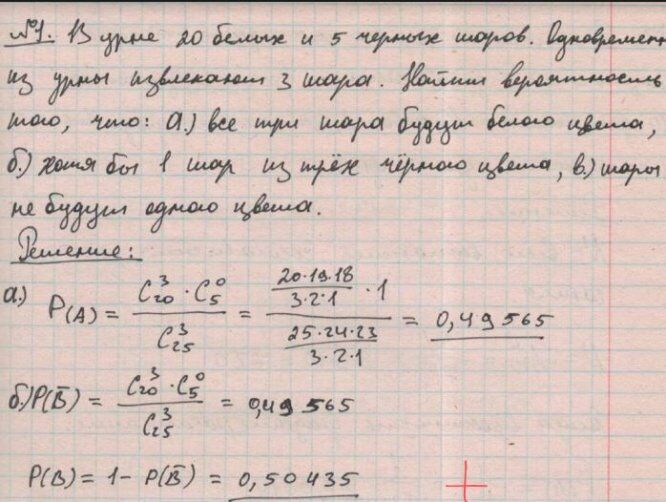 №1. В урне 20 белых и 5 черных шаров. Одновремен
из урны извлекают 3 шара. Найти вероятность
того, что: а.) все три шара будут белого цвета,
б.) хотя бы 1 шар из трёх чёрного цвета, в.) шары
не будут одного цвета.
Решение:
а.) P(A) = (C₂₀³ · C₅⁰) / C₂₅³ = ((20·19·18)/(3·2·1) · 1) / ((25·24·23)/(3·2·1)) = 0,49565
б.) P(B̄) = (C₂₀³ · C₅⁰) / C₂₅³ = 0,49565
P(B) = 1 - P(B̄) = 0,50435
+